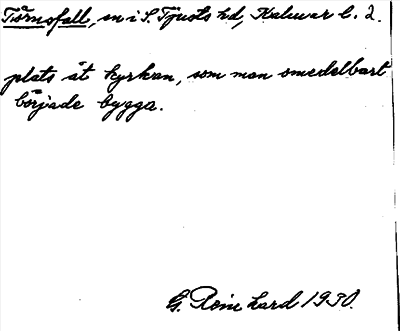 Törnsfall, sn i S. Tjusts hd, Kalmar l. 2.
plats åt kyrkan, som man omedelbart
började bygga.
G. Rein hard 1930.